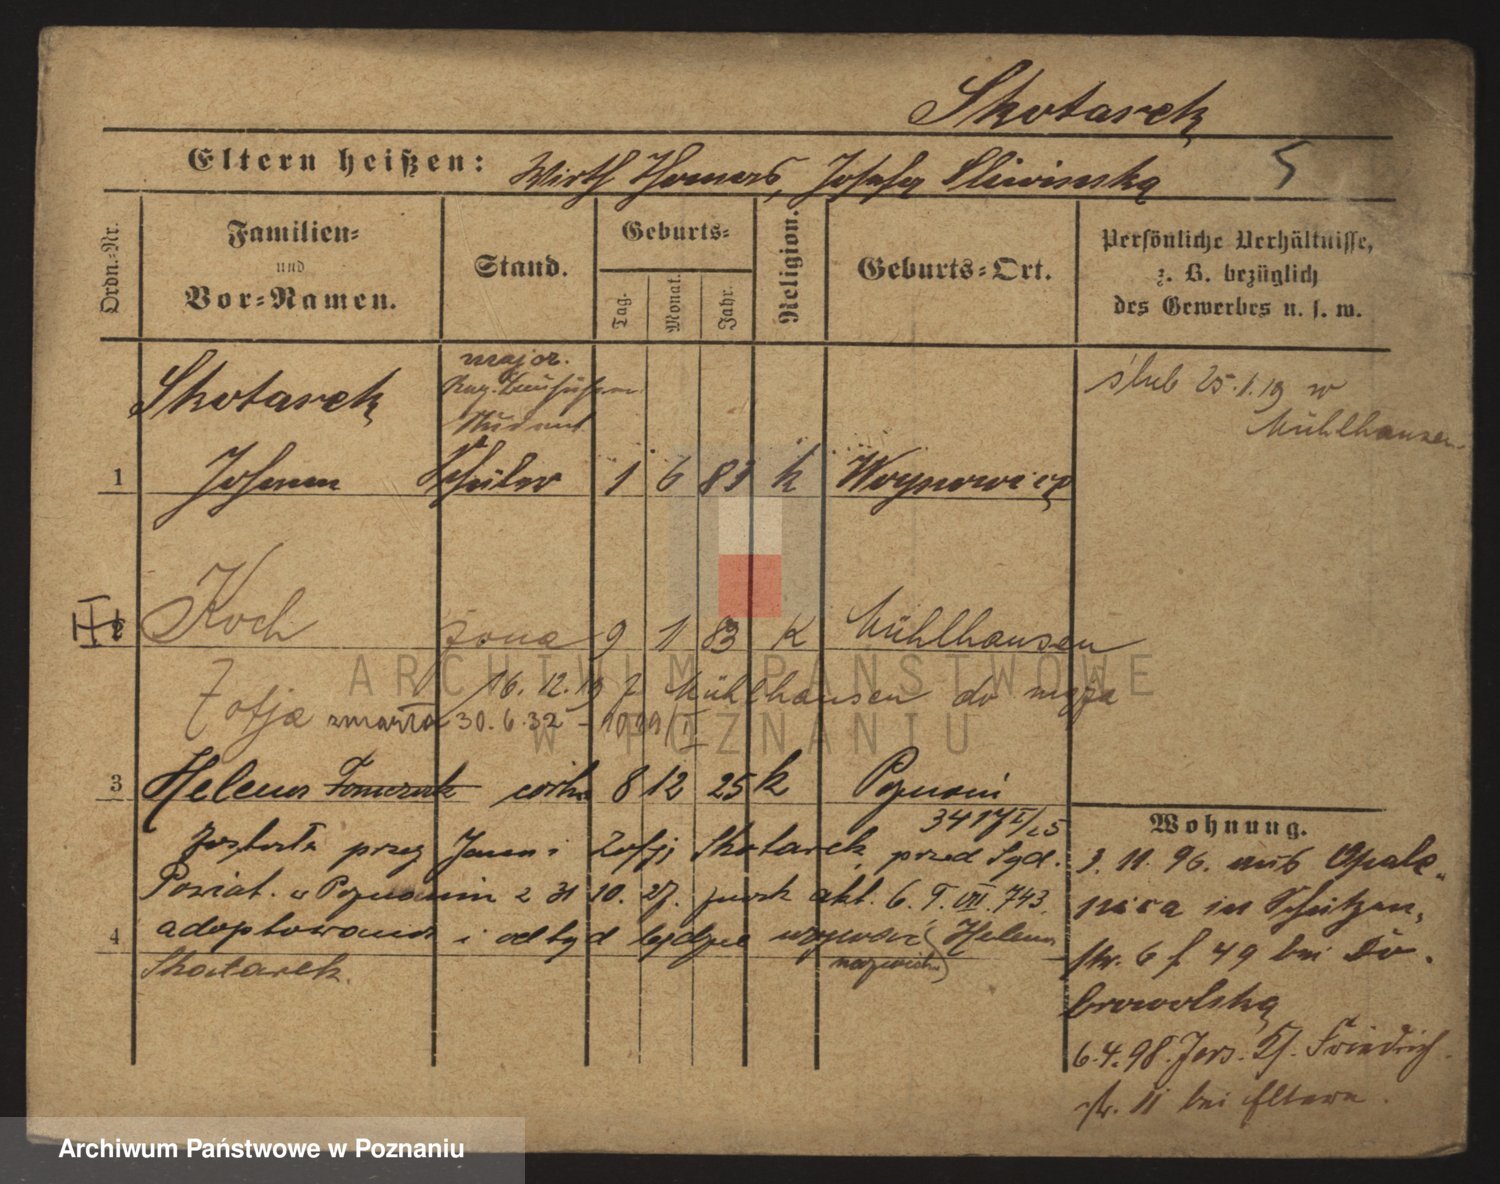 Skotarek
Eltern heißen: Wirth Thomas, Josefa Sliwinska 5
Ordn.-Nr. Familien- und Vor-Namen. Stand. Geburts- Tag. Monat. Jahr. Religion. Geburts-Ort. Persönliche Verhältnisse, z. B. bezüglich des Gewerbes u. s. w.
Skotarek major. ślub 25.1.19 w
Student Mühlhausen
1 Johann Schüler 1 6 83 k Woynowice
2 Koch żona 9 1 83 K Mühlhausen
16.12.19 z Mühlhausen do męża
Zofja zmarła 30.6.32
3 Helena Tomczak córka 8 12 25 k Poznań
została przez Jana i Zofji Skotarek przed Sąd.
Powiat. w Poznaniu z 31 10. 27. akt. 6. T. VII. 743.
4 adoptowana i odtąd będzie używać Helena
nazwiska
Skotarek.
Wohnung.
3. 11. 96. aus Opale-
nica in Schützen-
str. 6 f 49 bei Do-
browolska
6.4.98. Jers. Friedrich-
str. 11 bei Eltern.
ARCHIWUM PAŃSTWOWE
W POZNANIU
Archiwum Państwowe w Poznaniu